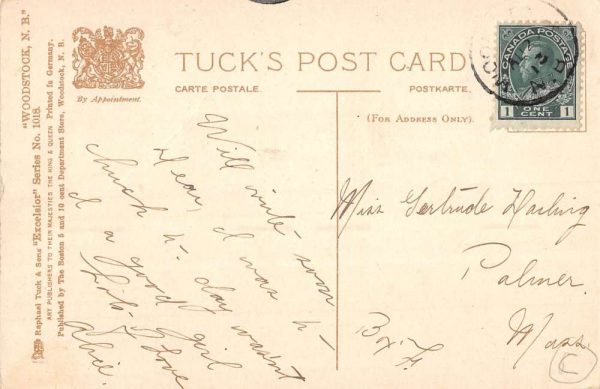 "WOODSTOCK, N. B."
Raphael Tuck & Sons "Excelsior" Series No. 1018.
ART PUBLISHERS TO THEIR MAJESTIES THE KING & QUEEN Printed in Germany.
Published by The Boston 5 and 10 cent Department Store, Woodstock, N. B.
By Appointment.
TUCK'S POST CARD
CARTE POSTALE.
POSTKARTE.
(FOR ADDRESS ONLY).
CANADA POSTAGE
1 ONE CENT 1
Will write soon
Dear, I was to
church to-day wasn't
I a good girl
Lots of love
Alice.
Miss Gertrude
Palmer
Mass
Box F.
C